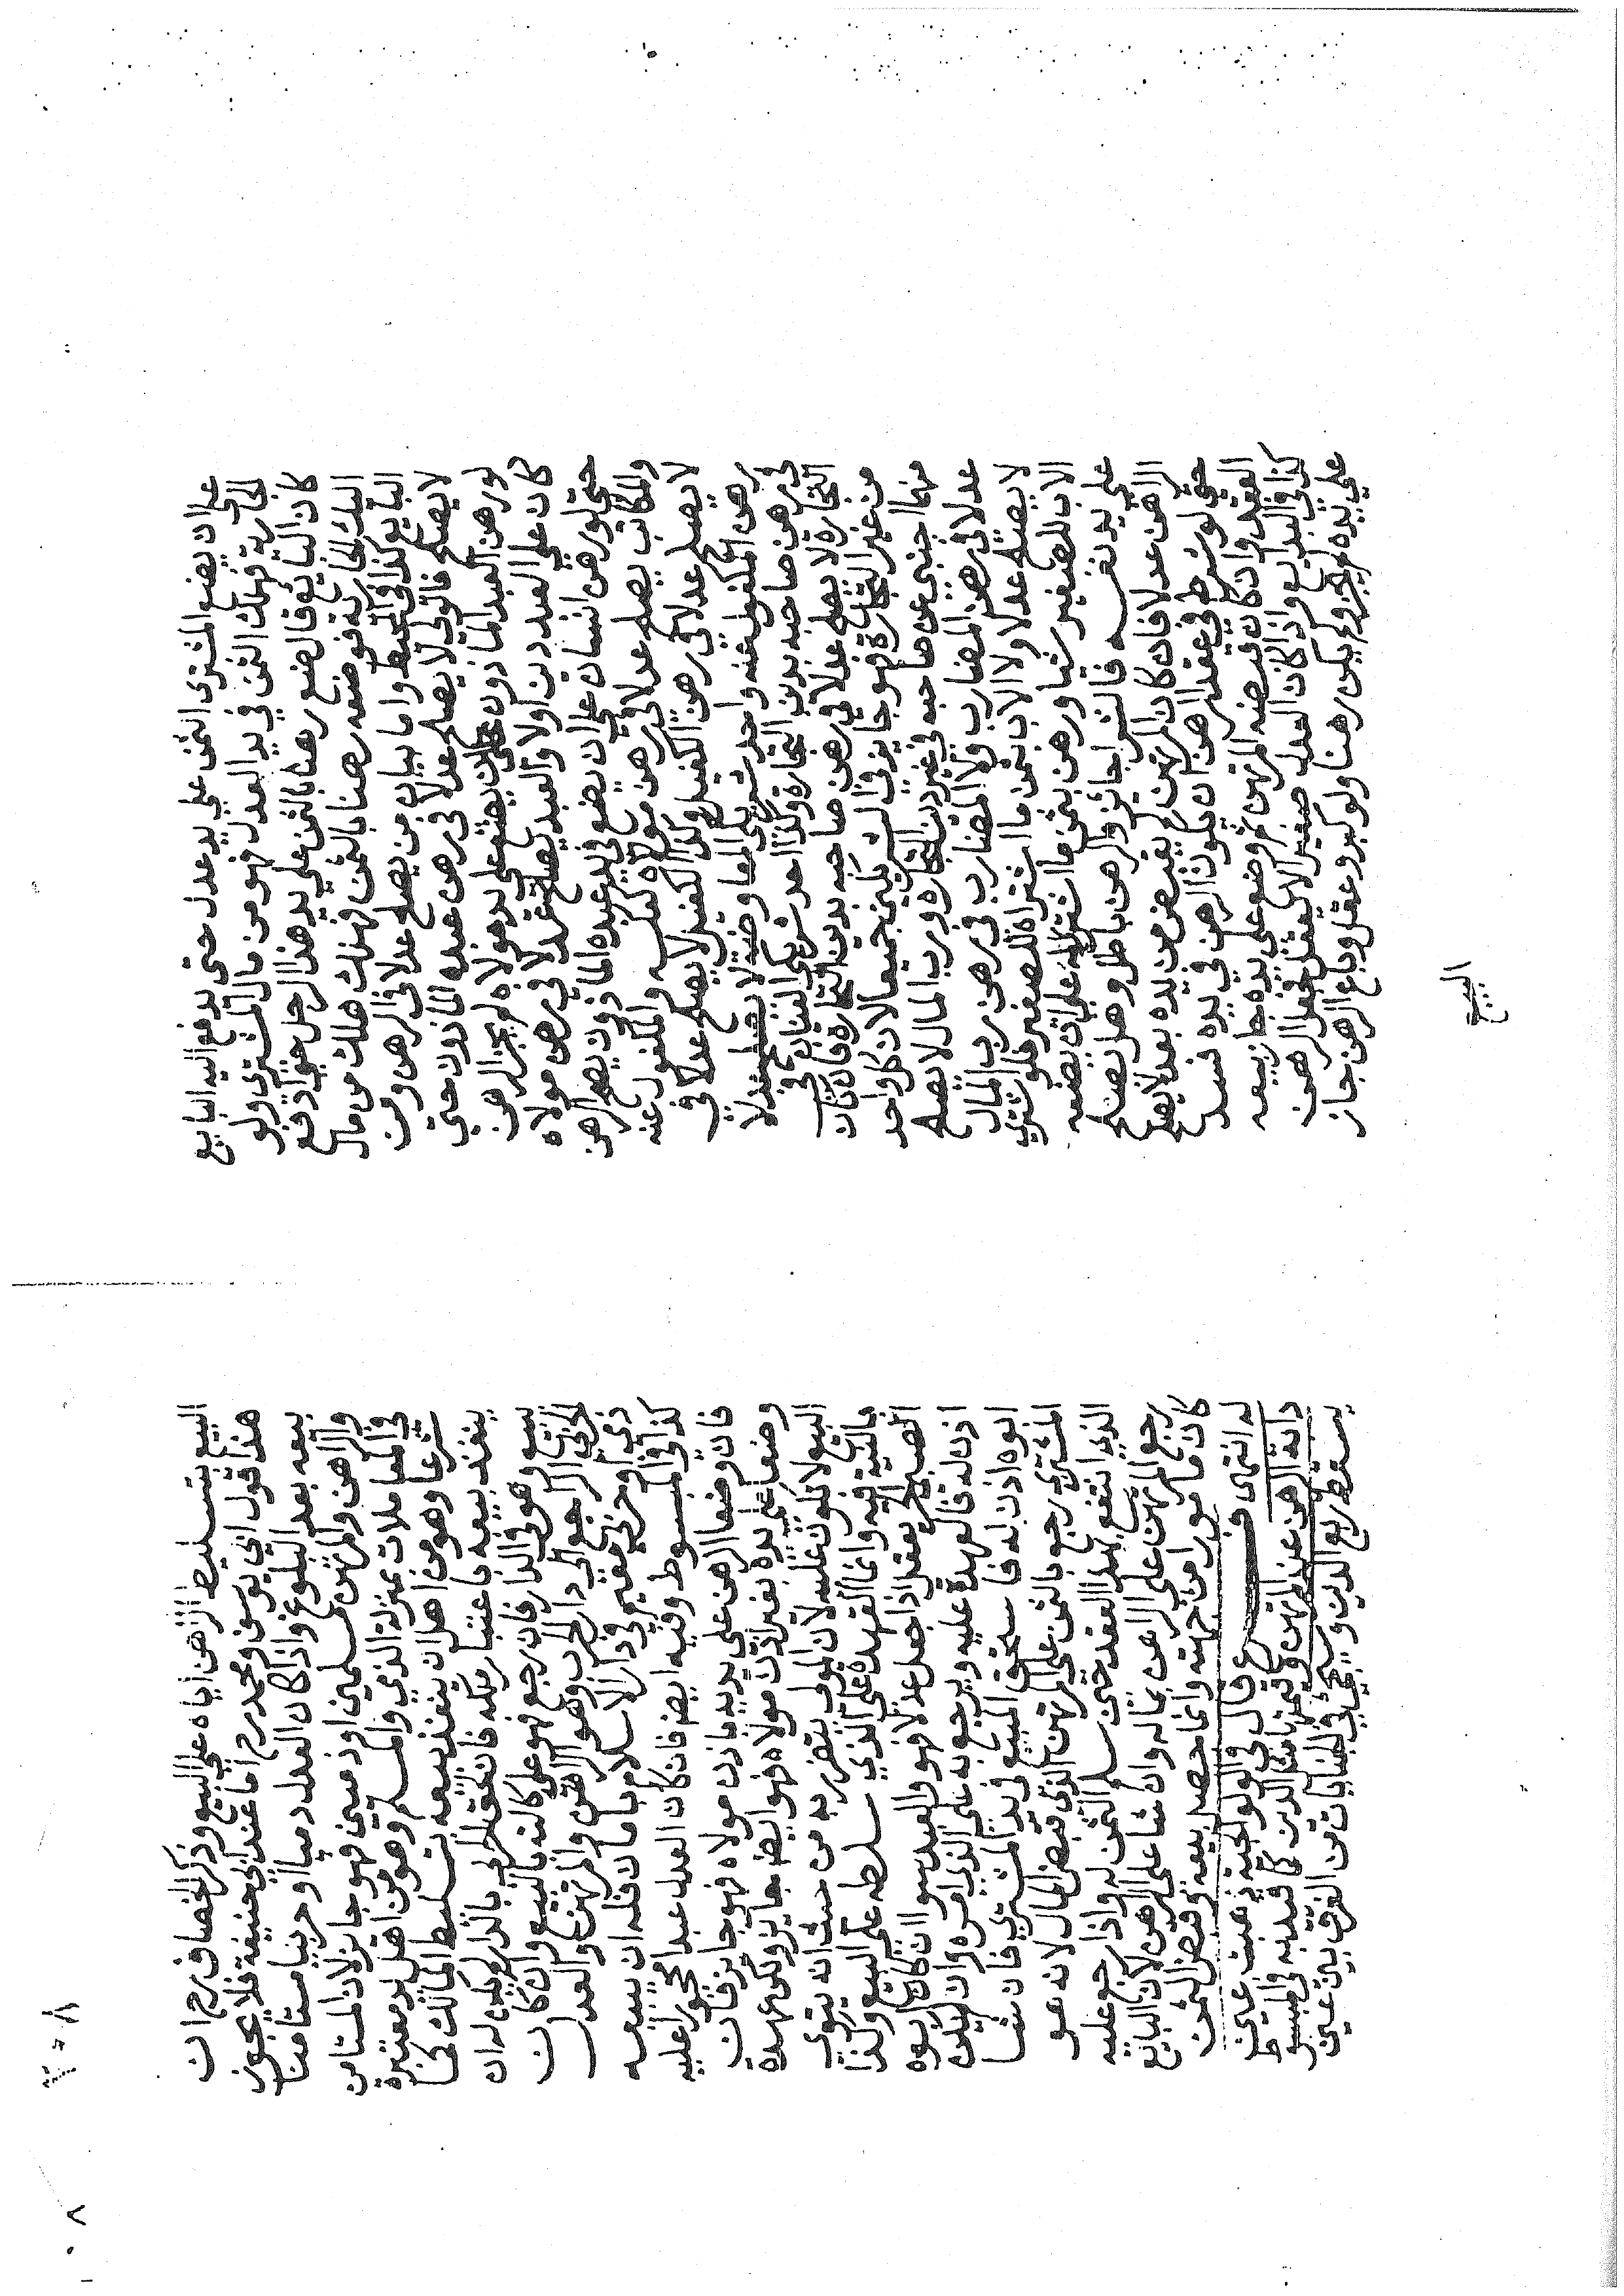 علي ان يضع المشتري الثمن علي يد عدل حتى يدفع اليه البايع
الجارية فهلك الثمن في يد العدل فهو من مال المشتري ولو
كان البايع قال ضع رهنا بالثمن علي يد هذا الرجل حتى ادفع
اليك الجارية فوضعه رهنا بالثمن فهلك هلك من مال
البايع كذا في المحيط واما بيان من يصلح عدلا في الرهن ومن
لا يصلح فالمولي لا يصلح عدلا في رهن عبده الماذون حتي
لو رهن العبد الماذون علي ان يضع علي يد مولاه لم يجز الرهن
كان علي العبد دين اولا والعبد يصلح عدلا في رهن مولاه
حتي لو رهن انسان علي ان يضع في يد عبده الماذون يصح الرهن
والمكاتب يصلح عدلا في رهن مولاه كعكسه والمكفول عنه
لا يصلح عدلا في رهن الكفيل وكذا الكفيل لا يصلح عدلا في
رهن المكفول عنه واحد شريكي المفاوضة لا يصلح عدلا
في رهن صاحبه بدين التجارة وكذا احد شريكي العنان في
التجارة لا يصلح عدلا في رهن صاحبه بدين التجارة فان كان
من غير التجارة فهو جايز في الشريكين جميعا لان كل واحد
منهما اجنبي عن صاحبه في غير دين التجارة ورب المال لا يصلح
عدلا في رهن المضارب ولا المضارب في رهن رب المال
لا يصلح عدلا ولا الاب بثمن ما اشتراه للصغير فلو اشتري
الاب للصغير شيا ورهن بثمن ما اشتري له علي ان يضعه
علي يد نفسه فالشرا جائز والرهن باطل وهل يصلح
الراهن عدلا فان كان المرتهن لم يقبض من يده بعد لا يصلح
حتي لو شرط في عقد الرهن ان يكون الرهن في يده فسد
العقد وان كان قبضه المرتهن ثم وضع علي يده جاز بيعه
كذا في البدايع واذا كان العدل صغيرا لا يعقل فجعل الرهن
علي يده لم يجز ولم يكن رهنا ولو كبر وعقل وباع الرهن جاز
البيع
البيع بتسليط الراهن اياه علي البيع وذكر الخصاف رح ان
هذا قول ابي يوسف ومحمد رح اما عند ابي حنيفة فلا يجوز
بيعه بعد البلوغ واذا كان العدل ذميا او حربيا مستامنا
والراهن والمرتهن مسلمين او ذميين فهو جايز لان المستامن
في المعاملات بمنزلة الذمي والمسلم وهو من اهل يد معتبرة
شرعا وهو من اهل ان ينفذ بيعه بتسليط المالك كما
ينفذ بيعه باعتبار ملكه فان لحق الحربي بالدار لم يكن له ان
يبيع وهو في الدار فان رجع فهو علي وكالته بالبيع وان كان
الحربي الراجع الي دار الحرب وهو الراهن والمرتهن والعدل
ذمي او حربي مقيم في دار الاسلام بامان فله ان يبيعه
كذا في المبسوط وفيه ايضا فان كان العدل عبدا محجورا عليه
فان وضعا الرهن علي يديه باذن مولاه فهو جايز فان
وضعا علي يده بغير اذن مولاه فهو ايضا جايز ولكن عهدة
البيع لا تكون عليه لان المولي يتضرر به من حيث انه يتوي
ماليته فيه وانما العهدة علي الذي سلطه علي البيع وكذا
الصبي الحر يعقل اذا جعل عدلا فهو والعبد سوا ان كان ابوه
اذن له فالعهدة عليه ويرجع به علي الذي امره وان لم يكن
ابوه اذن له فاستحق المبيع في يد المشتري فان شا
المشتري رجع بالثمن علي المرتهن الذي قبض المال لانه هو
الذي انتفع بهذا العقد حتى سلم الثمن له واذا رجع عليه
رجع المرتهن علي الراهن بماله وان شا علي الراهن لان البايع
كان مامورا من جهته وانما حصل بيعه وقبض الثمن
له انتهى فرع قال في الولوالجية ذهبت عين
دابة الرهن عند المرتهن وقيمتها مثل الدين كما قيد به في المبسوط
يسقط ربع الدين وسيجي في الجنايات من الفرق بين عين